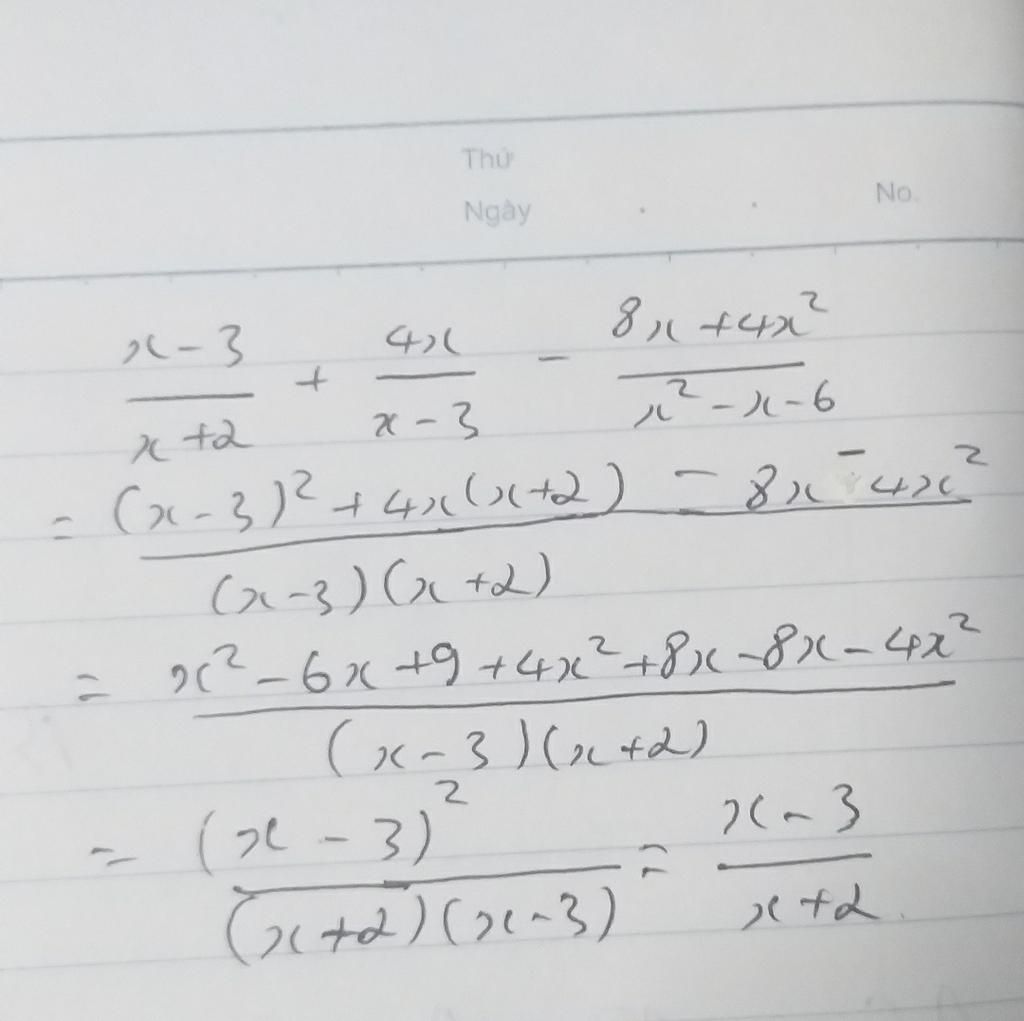 Thứ
Ngày No.
\frac{x-3}{x+2} + \frac{4x}{x-3} - \frac{8x+4x^2}{x^2-x-6}
= \frac{(x-3)^2+4x(x+2)-8x-4x^2}{(x-3)(x+2)}
= \frac{x^2-6x+9+4x^2+8x-8x-4x^2}{(x-3)(x+2)}
= \frac{(x-3)^2}{(x+2)(x-3)} = \frac{x-3}{x+2}.